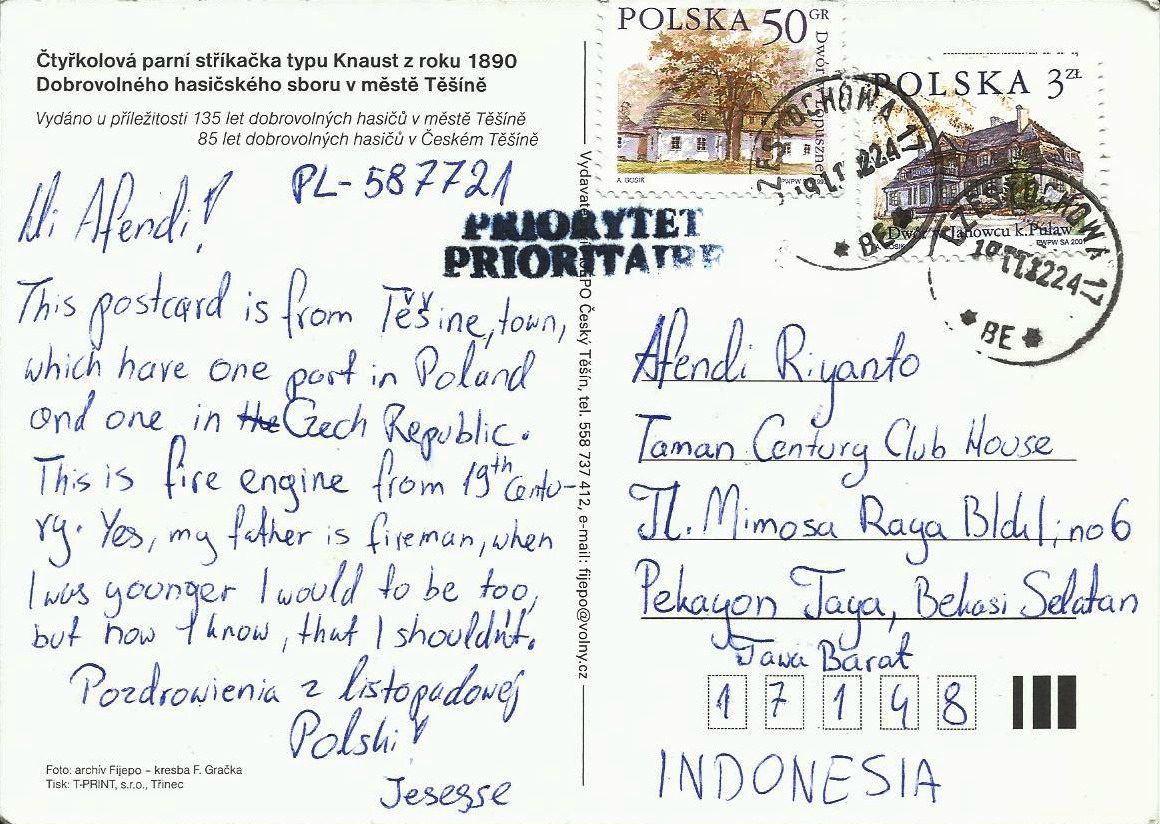 Čtyřkolová parní stříkačka typu Knaust z roku 1890
Dobrovolného hasičského sboru v městě Těšíně
Vydáno u příležitosti 135 let dobrovolných hasičů v městě Těšíně
85 let dobrovolných hasičů v Českém Těšíně
PL-587721
Hi Afendi!
This postcard is from Těšine, town,
which have one part in Poland
and one in the Czech Republic.
This is fire engine from 19th centu-
ry. Yes, my father is fireman, when
I was yoonger I would to be too,
but now I know, that I shouldn't.
Pozdrowienia z listopadowej
Polski!
Jesegse
Foto: archív Fijepo – kresba F. Gračka
Tisk: T-PRINT, s.r.o., Třinec
PRIORYTET
PRIORITAIRE
Český Těšín, tel. 558 737 412, e-mail: fijepo@volny.cz
POLSKA 50 GR
A. GOSIK
PWPW
POLSKA 3 ZŁ
Dwór w Janowcu k.Puław
PWPW SA 2001
CZĘSTOCHOWA 17
BE
CZĘSTOCHOWA 17
BE
Afendi Riyanto
Taman Century Club House
Jl. Mimosa Raya Blok I; no 6
Pekayon Jaya, Bekasi Selatan
Jawa Barat
17148
INDONESIA